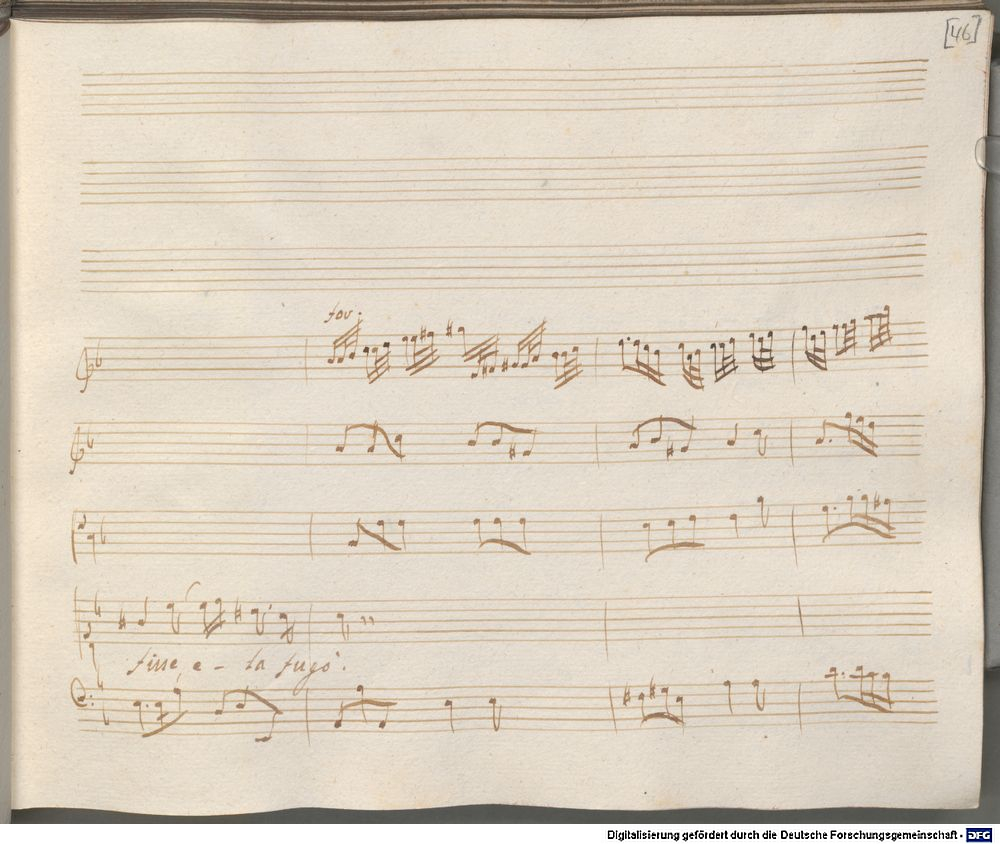 [46]
for.
fisse, e - ta fugò.
Digitalisierung gefördert durch die Deutsche Forschungsgemeinschaft - DFG